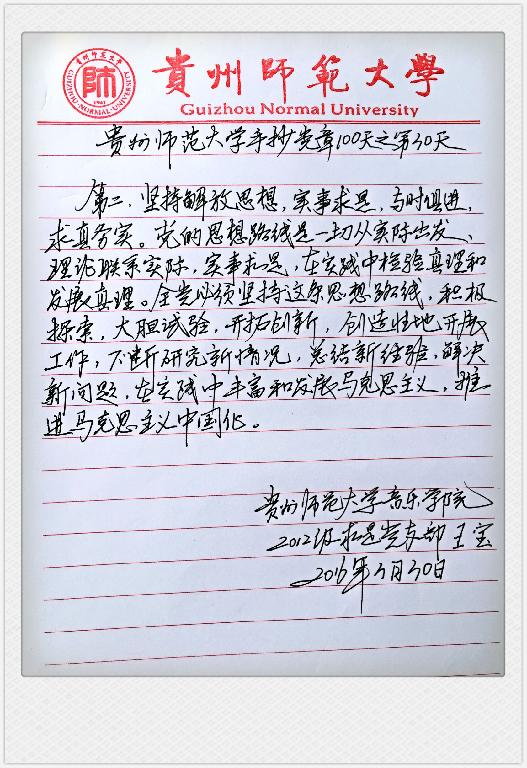 貴州師範大學
Guizhou Normal University
贵州师范大学手抄党章100天之第30天
第二,坚持解放思想,实事求是,与时俱进,
求真务实。党的思想路线是一切从实际出发,
理论联系实际,实事求是,在实践中检验真理和
发展真理。全党必须坚持这条思想路线,积极
探索,大胆试验,开拓创新,创造性地开展
工作,不断研究新情况,总结新经验,解决
新问题,在实践中丰富和发展马克思主义,推
进马克思主义中国化。
贵州师范大学音乐学院
2012级求是党支部 王宝
2016年3月30日
贵州师范大学
GUIZHOU·NORMAL·UNIVERSITY
師
1941